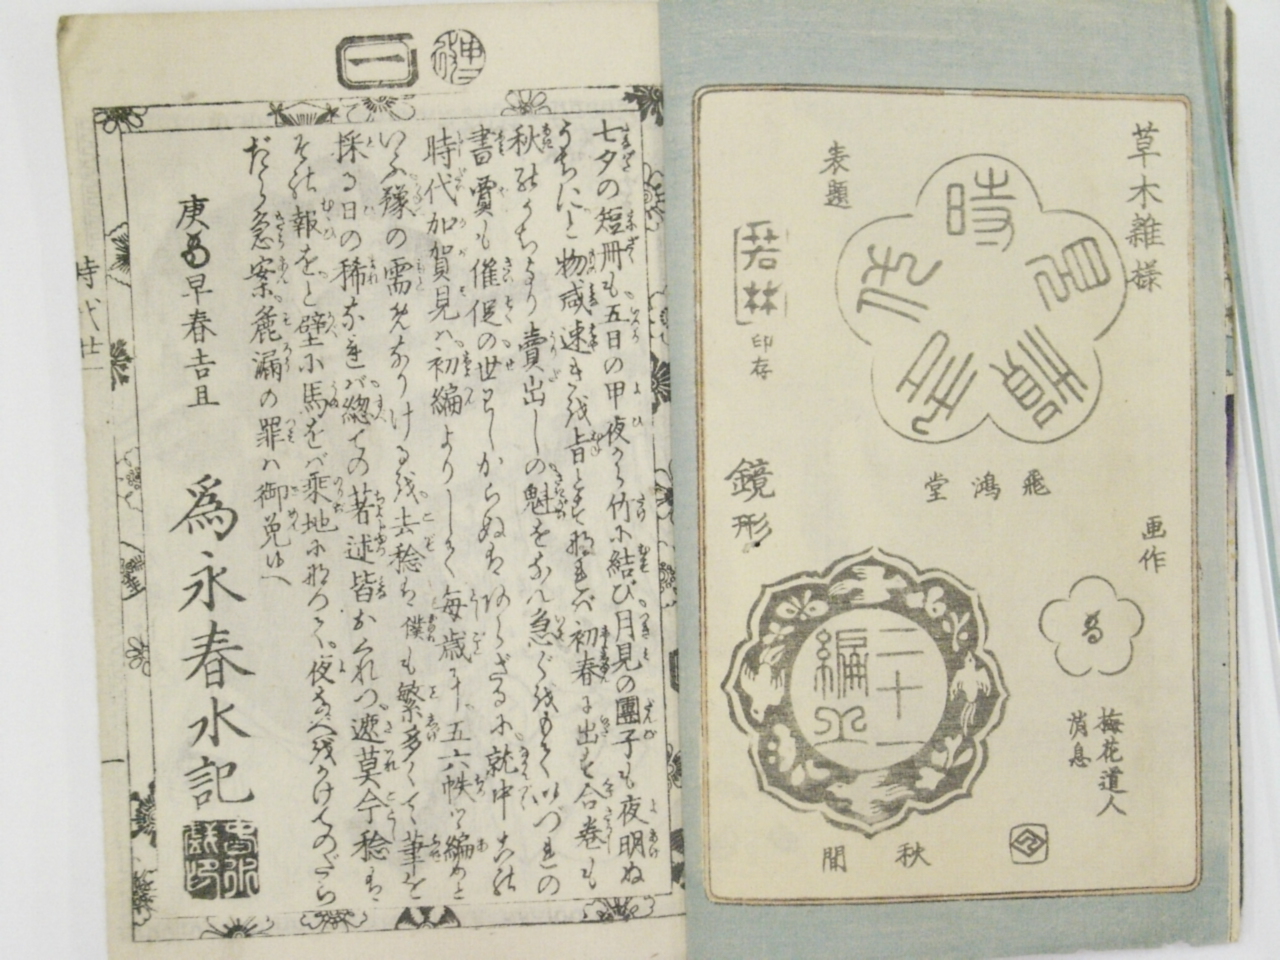 草木雑様
時
見
賀
加
代
表題
若林
印存
飛鴻堂
画作
梅花道人
消息
鏡形
二十一
編止
秋聞
一
七夕の短冊も五日の甲夜から竹に結び月見の團子も夜明ぬ
うちにと物咸速きを旨とすなれバ初春に出す合巻も
秋のうちより賣出しの魁をなん急ぐをもていづれの
書賈も催促の世わしからぬはあらざるに就中この
時代加賀見ハ初編よりしてく毎歳に五六帙を編めと
いふ豫の需めなりけるを去稔は僕も繁多くて筆を
採る日の稀なれバ總ての著述皆おくれつ遮莫今稔は
その報をと壁に馬をバ乗地になりつく夜なべをかけてのぞら
だら急案麁漏の罪ハ御免候へ
庚早春吉旦
爲永春水記
時代
一